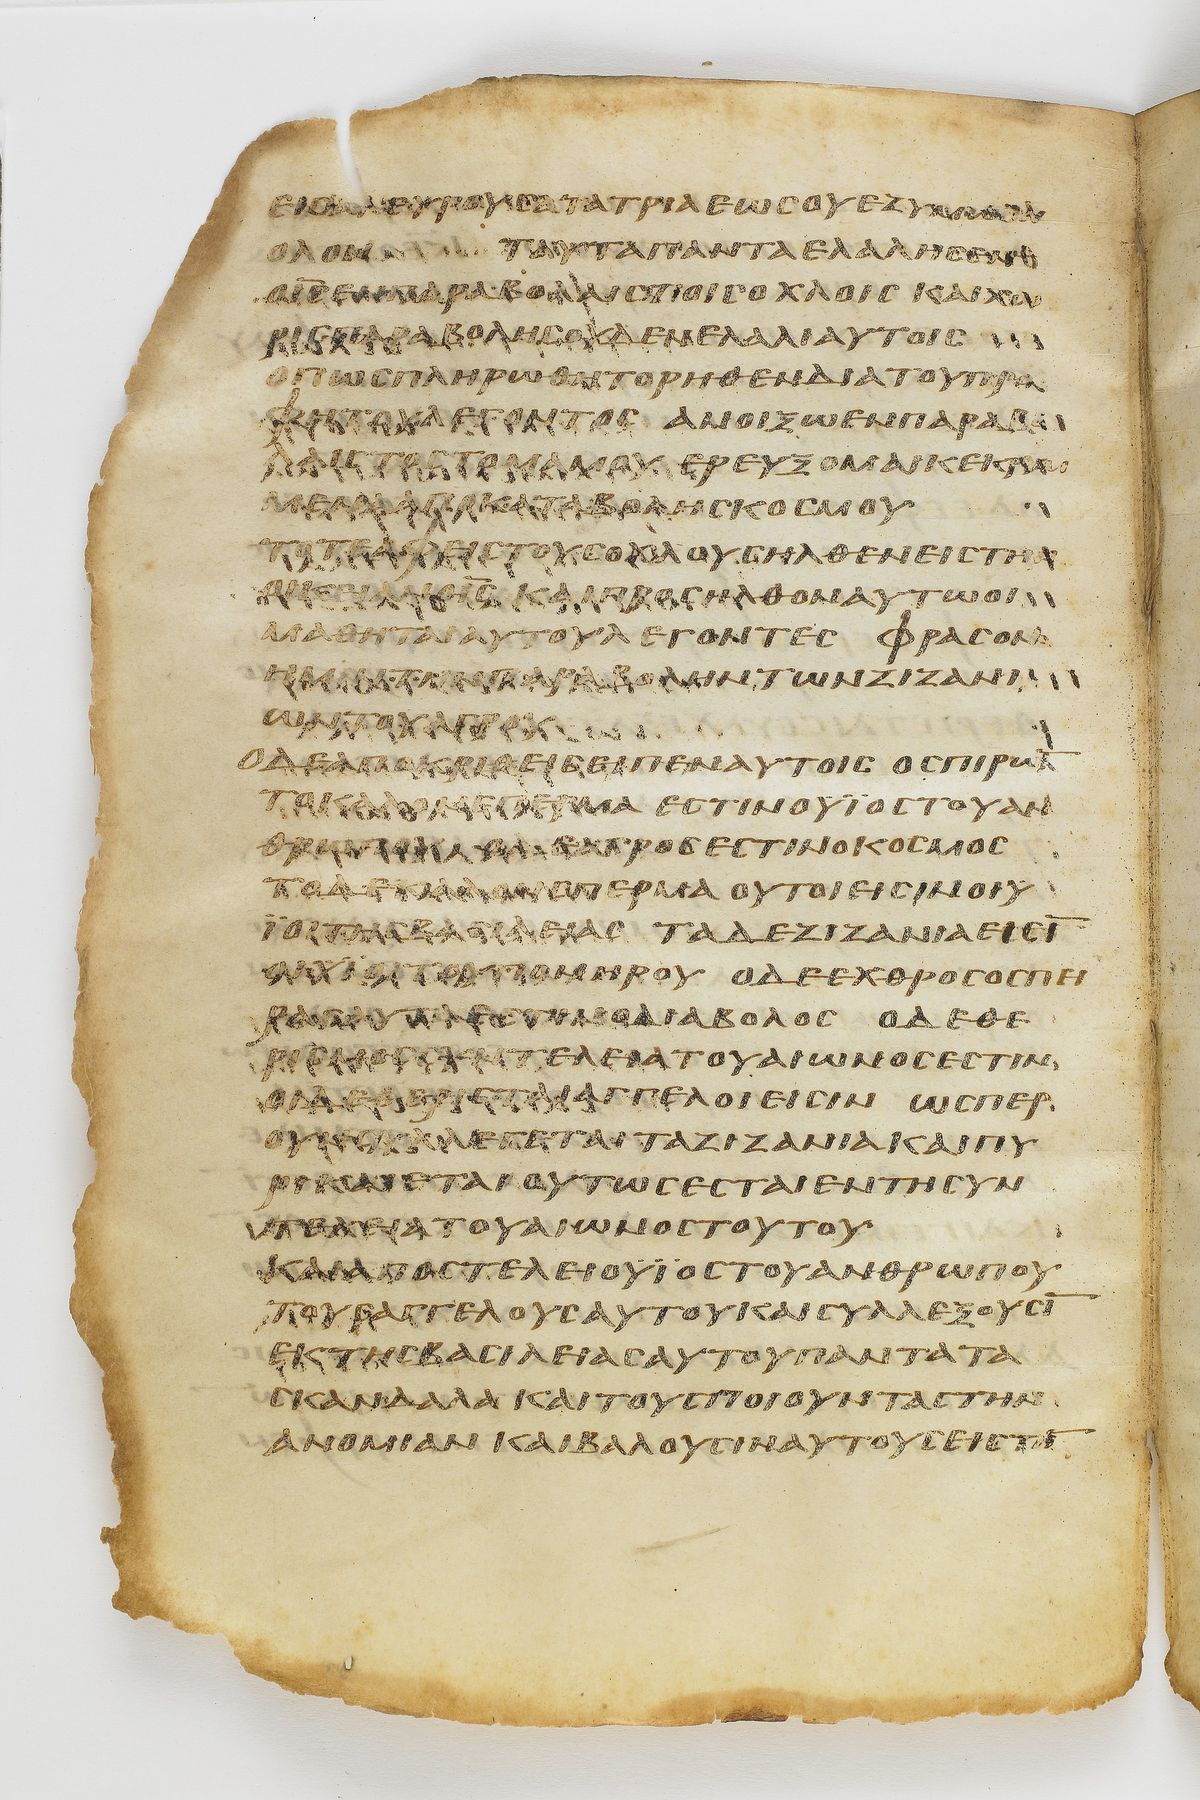 ειϲαλευρουϲατατριαεωϲουεζυμωθη
ολον ταυταπανταελαληϲεν
οιϲενπαραβολαιϲτοιϲοχλοιϲ καιχω
ριϲπαραβοληϲουκενελαλιαυτοιϲ
οπωϲπληρωθητορηθενδιατουπρο
φητουλεγοντοϲ ανοιξωενπαραβο
λαιϲτοϲτομαμου ερευξομαικεκρυμ
μενααποκαταβοληϲκοϲμου
τοτεαφειϲτουϲοχλουϲηλθενειϲτην
καιπροϲηλθοναυτωοι
μαθηταιαυτουλεγοντεϲ φραϲον
ημιντηνπαραβοληντωνζιζανι
ωντουαγρου
οδεαποκριθειϲειπεναυτοιϲ οϲπιρων
τοκαλονϲπερμα εϲτινουϊοϲτουαν
θρωπου οδεαγροϲεϲτινοκοϲμοϲ
τοδεκαλονϲπερμα ουτοιειϲινοιυ
ϊοιτηϲβαϲιλειαϲ ταδεζιζανιαειϲῑ
οιυϊοιτουπονηρου οδεεχθροϲοϲπει
ραϲαυταεϲτινοδιαβολοϲ οδεθε
ριϲμοϲϲυντελειατουαιωνοϲεϲτιν
οιδεθεριϲταιαγγελοιειϲιν ωϲπερ
ουνϲυλλεγεταιταζιζανιακαιπυ
ρικαιεταιουτωϲεϲταιεντηϲυν
τελειατουαιωνοϲτουτου
καιαποϲτελειουϊοϲτουανθρωπου
τουϲαγγελουϲαυτουκαιϲυλλεξουϲῑ
εκτηϲβαϲιλειαϲαυτουπαντατα
ϲκανδαλα καιτουϲποιουνταϲτην
ανομιαν καιβαλουϲιναυτουϲειϲτῑ